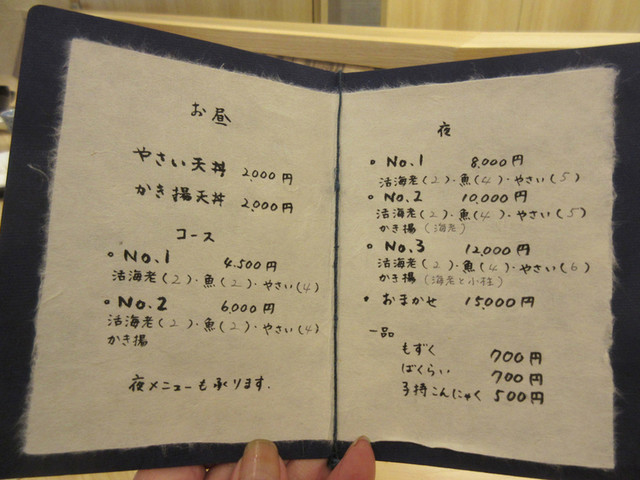 お昼
やさい天丼 2,000円
かき揚天丼 2,000円
コース
• No.1 4,500円
活海老(2)・魚(2)・やさい(4)
• No.2 6,000円
活海老(2)・魚(2)・やさい(4)
かき揚
夜メニューも承ります.
夜
• No.1 8,000円
活海老(2)・魚(4)・やさい(5)
• No.2 10,000円
活海老(2)・魚(4)・やさい(5)
かき揚(海老)
• No.3 12,000円
活海老(2)・魚(4)・やさい(6)
かき揚(海老と小柱)
• おまかせ 15,000円
一品
もずく 700円
ばくらい 700円
子持こんにゃく 500円